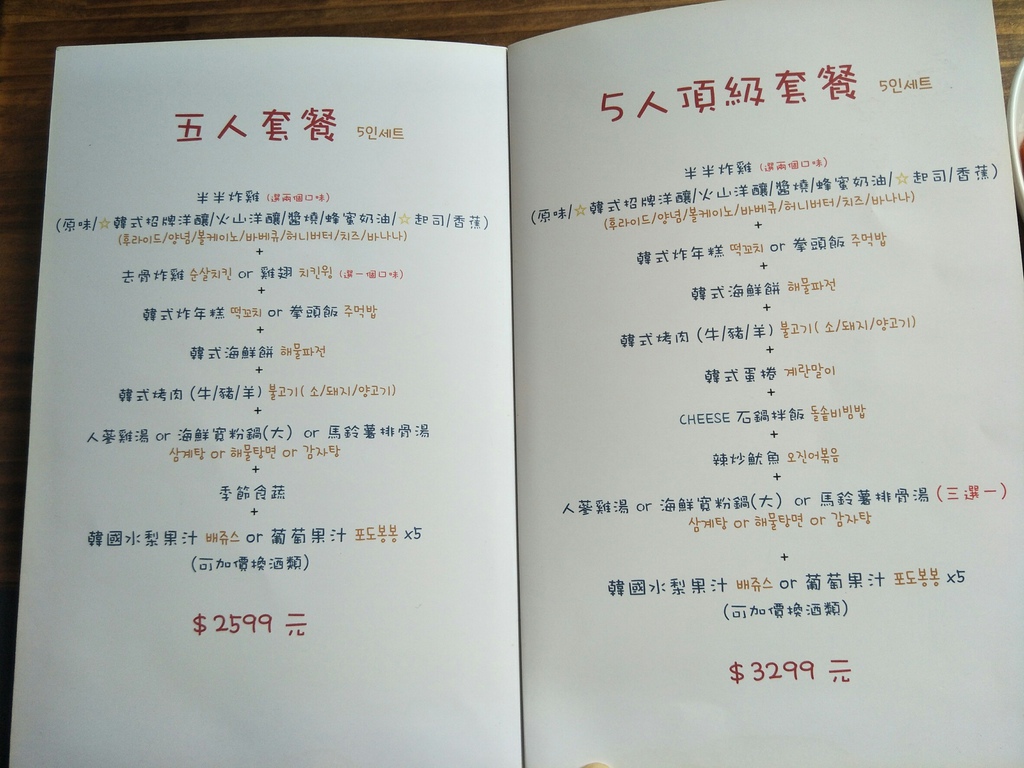 五人套餐 5인세트
半半炸雞 (選兩個口味)
(原味/☆韓式招牌洋釀/火山洋釀/醬燒/蜂蜜奶油/☆起司/香蕉)
(후라이드/양념/볼케이노/바베큐/허니버터/치즈/바나나)
+
去骨炸雞 순살치킨 or 雞翅 치킨윙 (選一個口味)
+
韓式炸年糕 떡꼬치 or 拳頭飯 주먹밥
+
韓式海鮮餅 해물파전
+
韓式烤肉 (牛/豬/羊) 불고기( 소/돼지/양고기)
+
人蔘雞湯 or 海鮮寬粉鍋(大) or 馬鈴薯排骨湯
삼계탕 or 해물탕면 or 감자탕
+
季節食蔬
+
韓國水梨果汁 배쥬스 or 葡萄果汁 포도봉봉 x5
(可加價換酒類)
$2599 元
5人頂級套餐 5인세트
半半炸雞 (選兩個口味)
(原味/☆韓式招牌洋釀/火山洋釀/醬燒/蜂蜜奶油/☆起司/香蕉)
(후라이드/양념/볼케이노/바베큐/허니버터/치즈/바나나)
+
韓式炸年糕 떡꼬치 or 拳頭飯 주먹밥
+
韓式海鮮餅 해물파전
+
韓式烤肉 (牛/豬/羊) 불고기( 소/돼지/양고기)
+
韓式蛋捲 계란말이
+
CHEESE 石鍋拌飯 돌솥비빔밥
+
辣炒魷魚 오진어볶음
+
人蔘雞湯 or 海鮮寬粉鍋(大) or 馬鈴薯排骨湯 (三選一)
삼계탕 or 해물탕면 or 감자탕
+
韓國水梨果汁 배쥬스 or 葡萄果汁 포도봉봉 x5
(可加價換酒類)
$3299 元